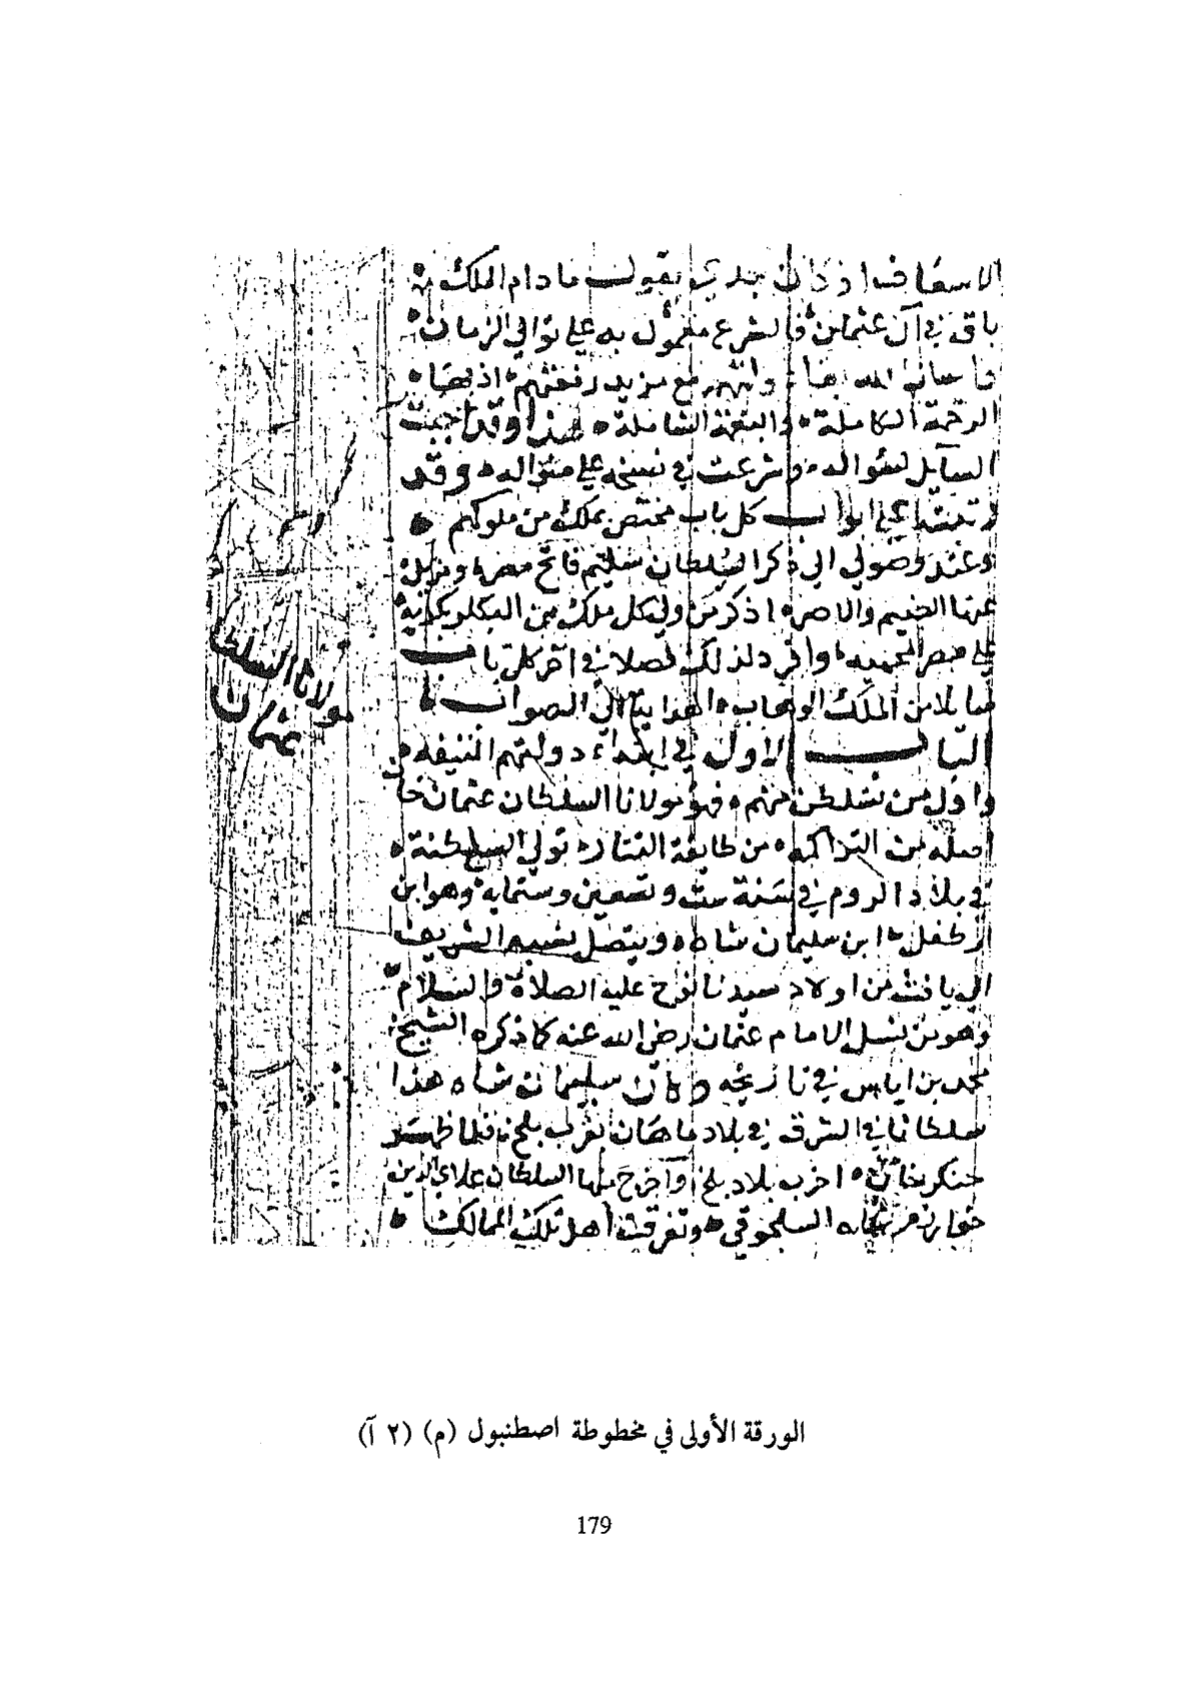 الاسعاف اذ كان جدي يقول ما دام الملك
باقى في آل عثمان فالشرع معمول به على توالي الزمان
الله مع مزيد رفعتهم
الرحمة الكاملة والنعمة الشاملة هذا وقد اجبت
السآيل لسؤاله وشرعت في نسخه على منواله وقد
رتبته على ابواب كل باب مختص بملك من ملوكهم
وعند وصولي الي ذكر السلطان سليم فاتح مصر ومزيل
عنها الضيم والاصر اذكر من ولي كل ملك من البكلربكية
علي مصر المحميه وافرد لذلك فصلا في آخر كل باب
سايلا من الملك الوهاب الهداية الي الصواب
الباب الاول في ابتداء دولتهم المنيفه
واول من تسلطن منهم فهو مولانا السلطان عثمان خان
اصله من التراكمه من طايفة التتار تولي السلطنة
في بلاد الروم في سنة ست وتسعين وستمايه وهو ابن
ارطغل ابن سليمان شاه ويتصل نسبه الشريف
الي يافث من اولاد سيدنا نوح عليه الصلاة والسلام
وهو من نسل الامام عثمان رضي الله عنه كما ذكره الشيخ
محمد بن اياس في تاريخه وكان سليمان شاه هذا
سلطانا في الشرق في بلاد ماهان بقرب بلخ فلما ظهر
جنكز خان اخرب بلاد بلخ وآخرج منها السلطان علاي الدين
خوارزم شاه السلجوقي وتفرقت اهل تلك الممالك
مولانا السلطان
عثمان
الورقة الأولى في مخطوطة اصطنبول (م) (٢ آ)
179